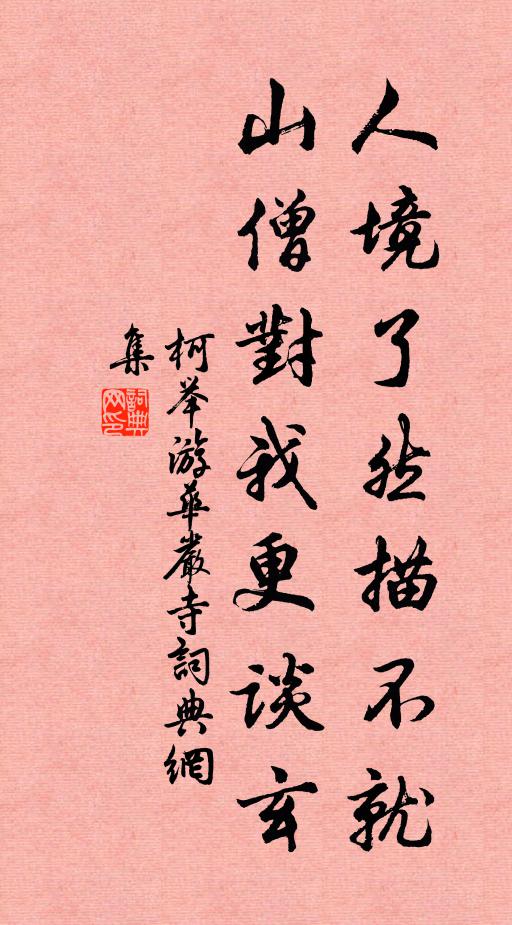 人境了然描不就
山僧對我更談玄
柯举游華嚴寺詞典網
集
詞典
网印